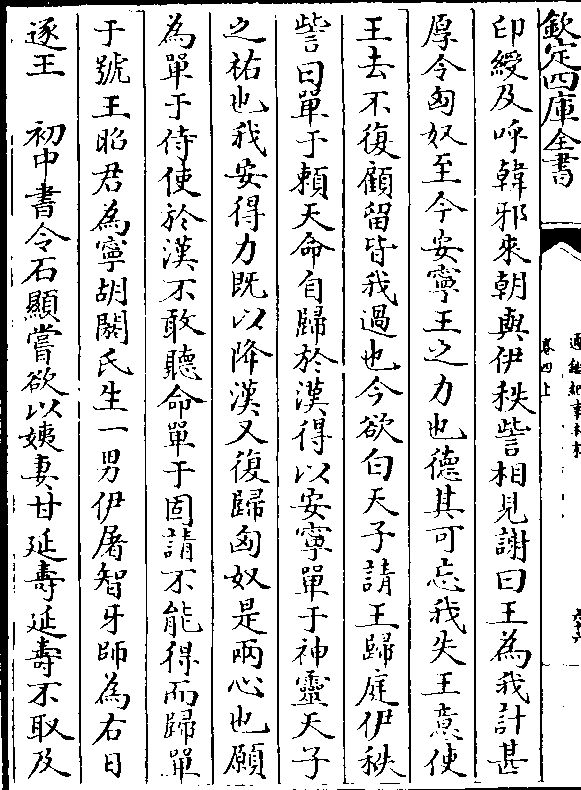 欽定四庫全書
通鑑紀事本末
卷四上
印綬及呼韓邪來朝與伊秩訾相見謝曰王為我計甚
厚令匈奴至今安寧王之力也德其可忘我失王意使
王去不復顧留皆我過也今欲白天子請王歸庭伊秩
訾曰單于賴天命自歸於漢得以安寧單于神靈天子
之祐也我安得力既以降漢又復歸匈奴是兩心也願
為單于侍使於漢不敢聽命單于固請不能得而歸單
于號王昭君為寧胡閼氏生一男伊屠智牙師為右日
逐王　初中書令石顯嘗欲以姨妻甘延壽延壽不取及